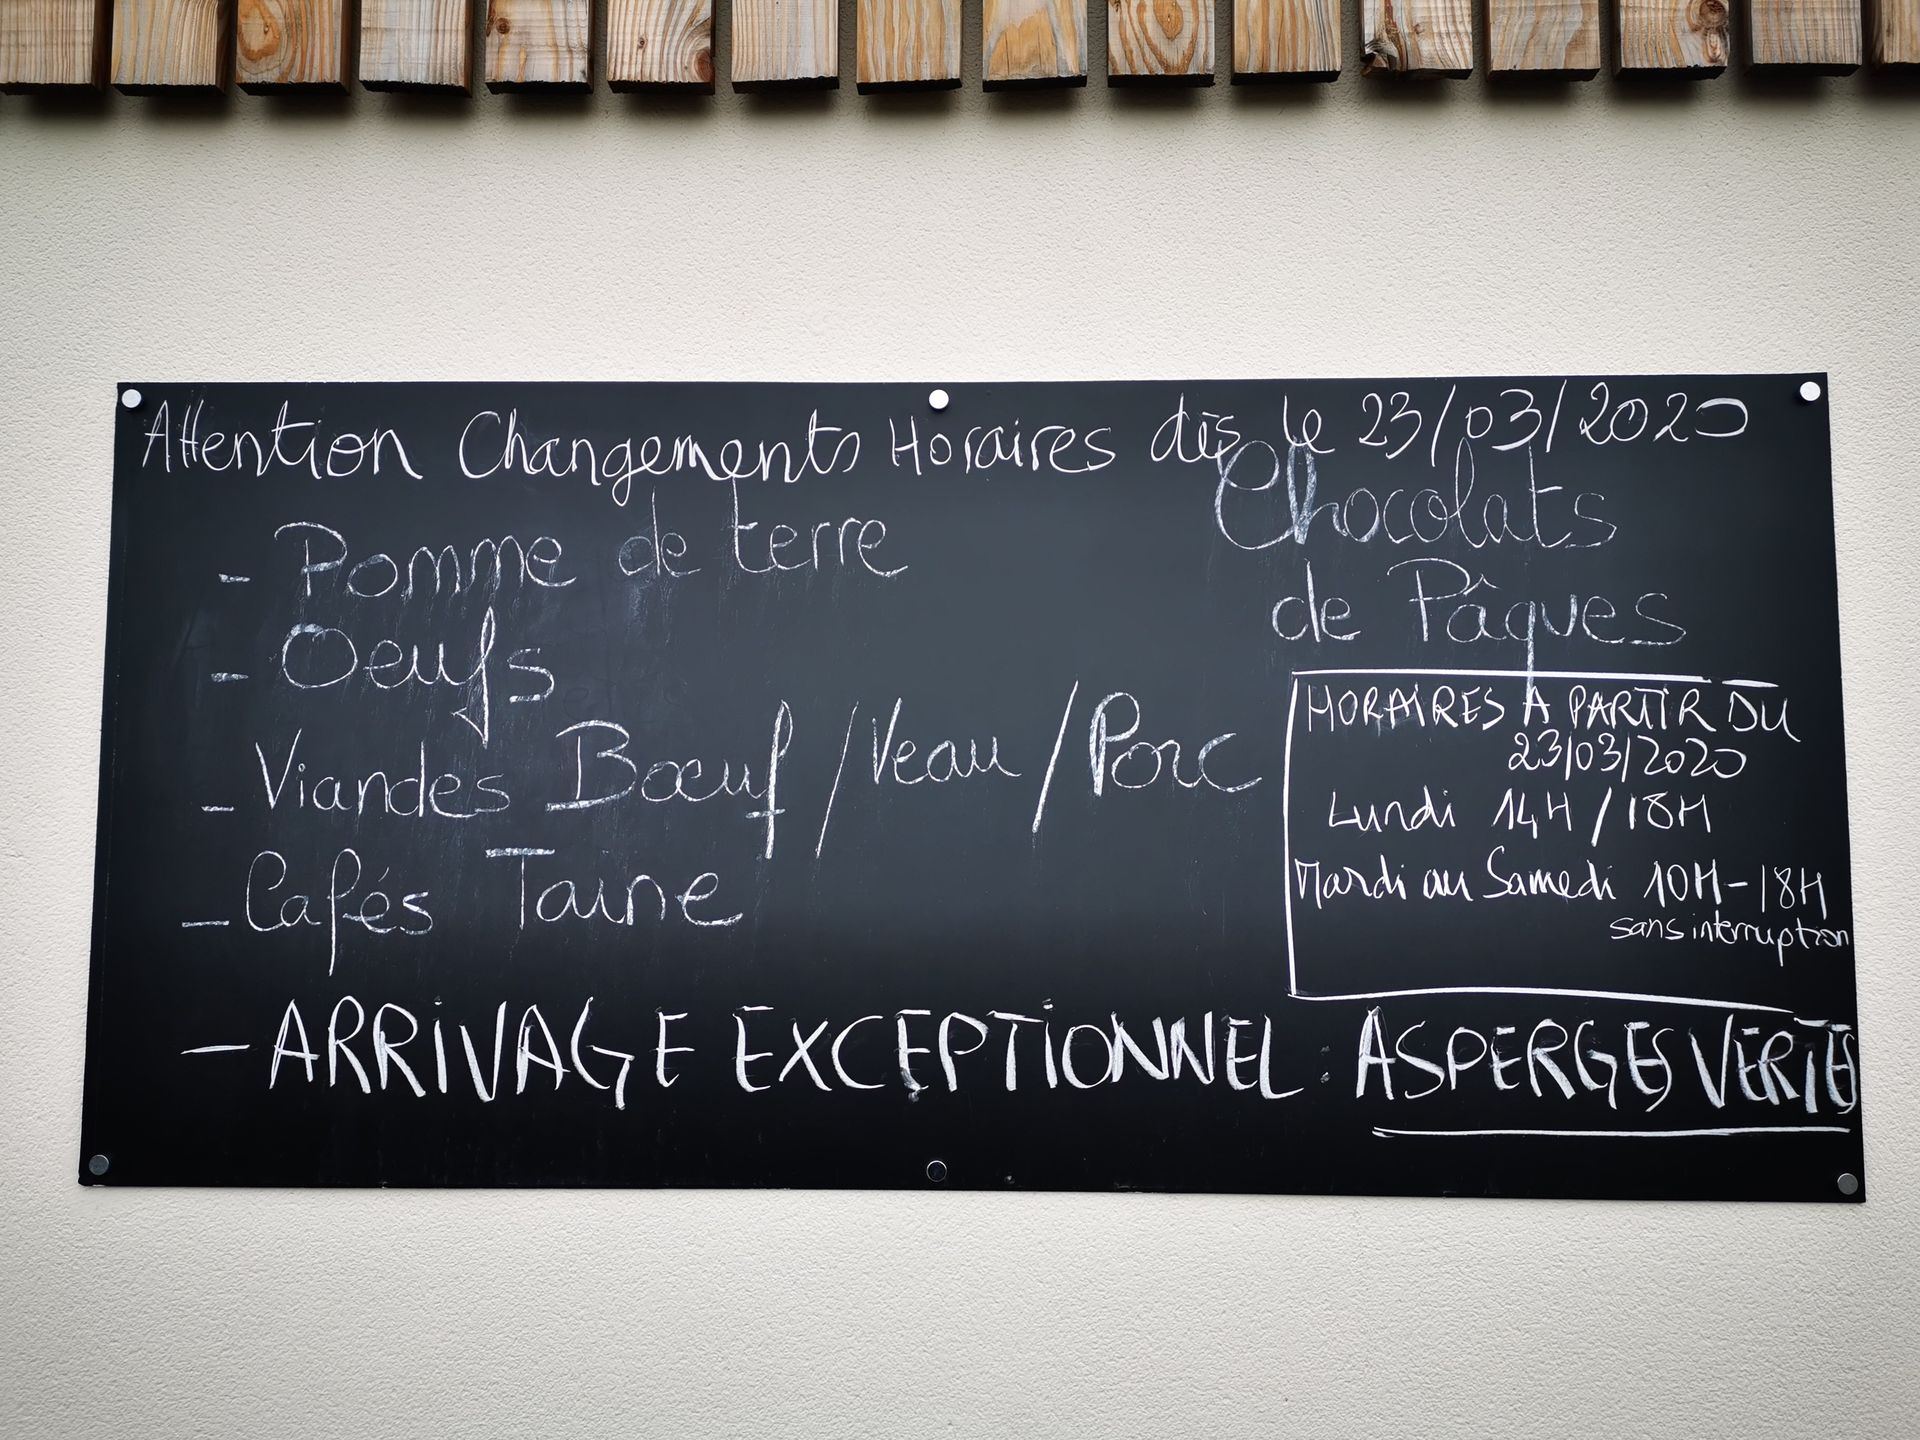 Attention Changements Horaires dès le 23/03/2020
- Pomme de terre
- Oeufs
- Viandes Bœuf / Veau / Porc
- Cafés Taine
Chocolats
de Pâques
HORAIRES A PARTIR DU
23/03/2020
Lundi 14H / 18H
Mardi au Samedi 10H - 18H
sans interruption
- ARRIVAGE EXCEPTIONNEL : ASPERGES VERTES